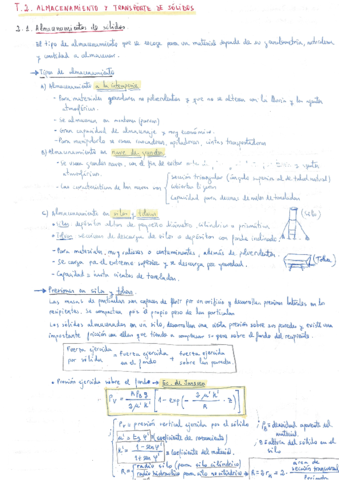 T.2. ALMACENAMIENTO Y TRANSPORTE DE SÓLIDOS
2.1. Almacenamiento de sólidos
El tipo de almacenamiento que se escoja para un material depende de su granulometría, actividad
y cantidad a almacenar.
→ Tipos de almacenamiento
a) Almacenamiento a la intemperie
- Para materiales groseros no pulverulentos y que no se alteren con la lluvia y los agentes
atmosféricos.
- Se almacenan en montones (parvas)
- Gran capacidad de almacenaje y muy económico.
- Para manipularlo se usan cucharas, cintas transportadoras
b) Almacenamiento en naves de graneles
- Se usan grandes naves, con el fin de evitar
atmosféricos.
- Las características de las naves son
Sección triangular (ángulo superior al de talud natural)
Cubiertas ligeras
Capacidad para decenas de miles de toneladas
c) Almacenamiento en silos y tolvas
(Silo)
• Silos: depósitos altos de pequeño diámetro, cilíndricos o prismáticos
• Tolvas: sistemas de descarga de silos o depósitos con fondo inclinado
- Para materiales muy valiosos o contaminantes, además de pulverulentos.
(Tolva)
- Se carga por el extremo superior y se descarga por gravedad.
- Capacidad: hasta cientos de toneladas.
→ Presiones en silos y tolvas
Las masas de partículas son capaces de fluir por un orificio y desarrollan presiones laterales en los
recipientes. Se compactan por el propio peso de las partículas
Los sólidos almacenados en un silo, desarrollan una cierta presión sobre sus paredes y existe una
importante fricción en ellas que tiende a compensar su peso sobre el fondo del recipiente.
Fuerza ejercida por sólido = Fuerza ejercida en el fondo + Fuerza ejercida sobre las paredes
• Presión ejercida sobre el fondo → Ec. de Janssen
Pv = R ρb g / 2 μ' k' [1 - exp(- 2 μ' k' / R · z)]
Pv = presión vertical ejercida por el sólido
ρb = densidad aparente del material
μ' = tg φ' (coeficiente de rozamiento)
z = altura del sólido en el silo
k' = 1 - sen φ' / 1 + sen φ' = coeficiente del material.
R = radio silo (para silo cilíndrico)
radio hidráulico para silo no cilíndrico → R = 2 rH = 2 área de sección transversal / Perímetro